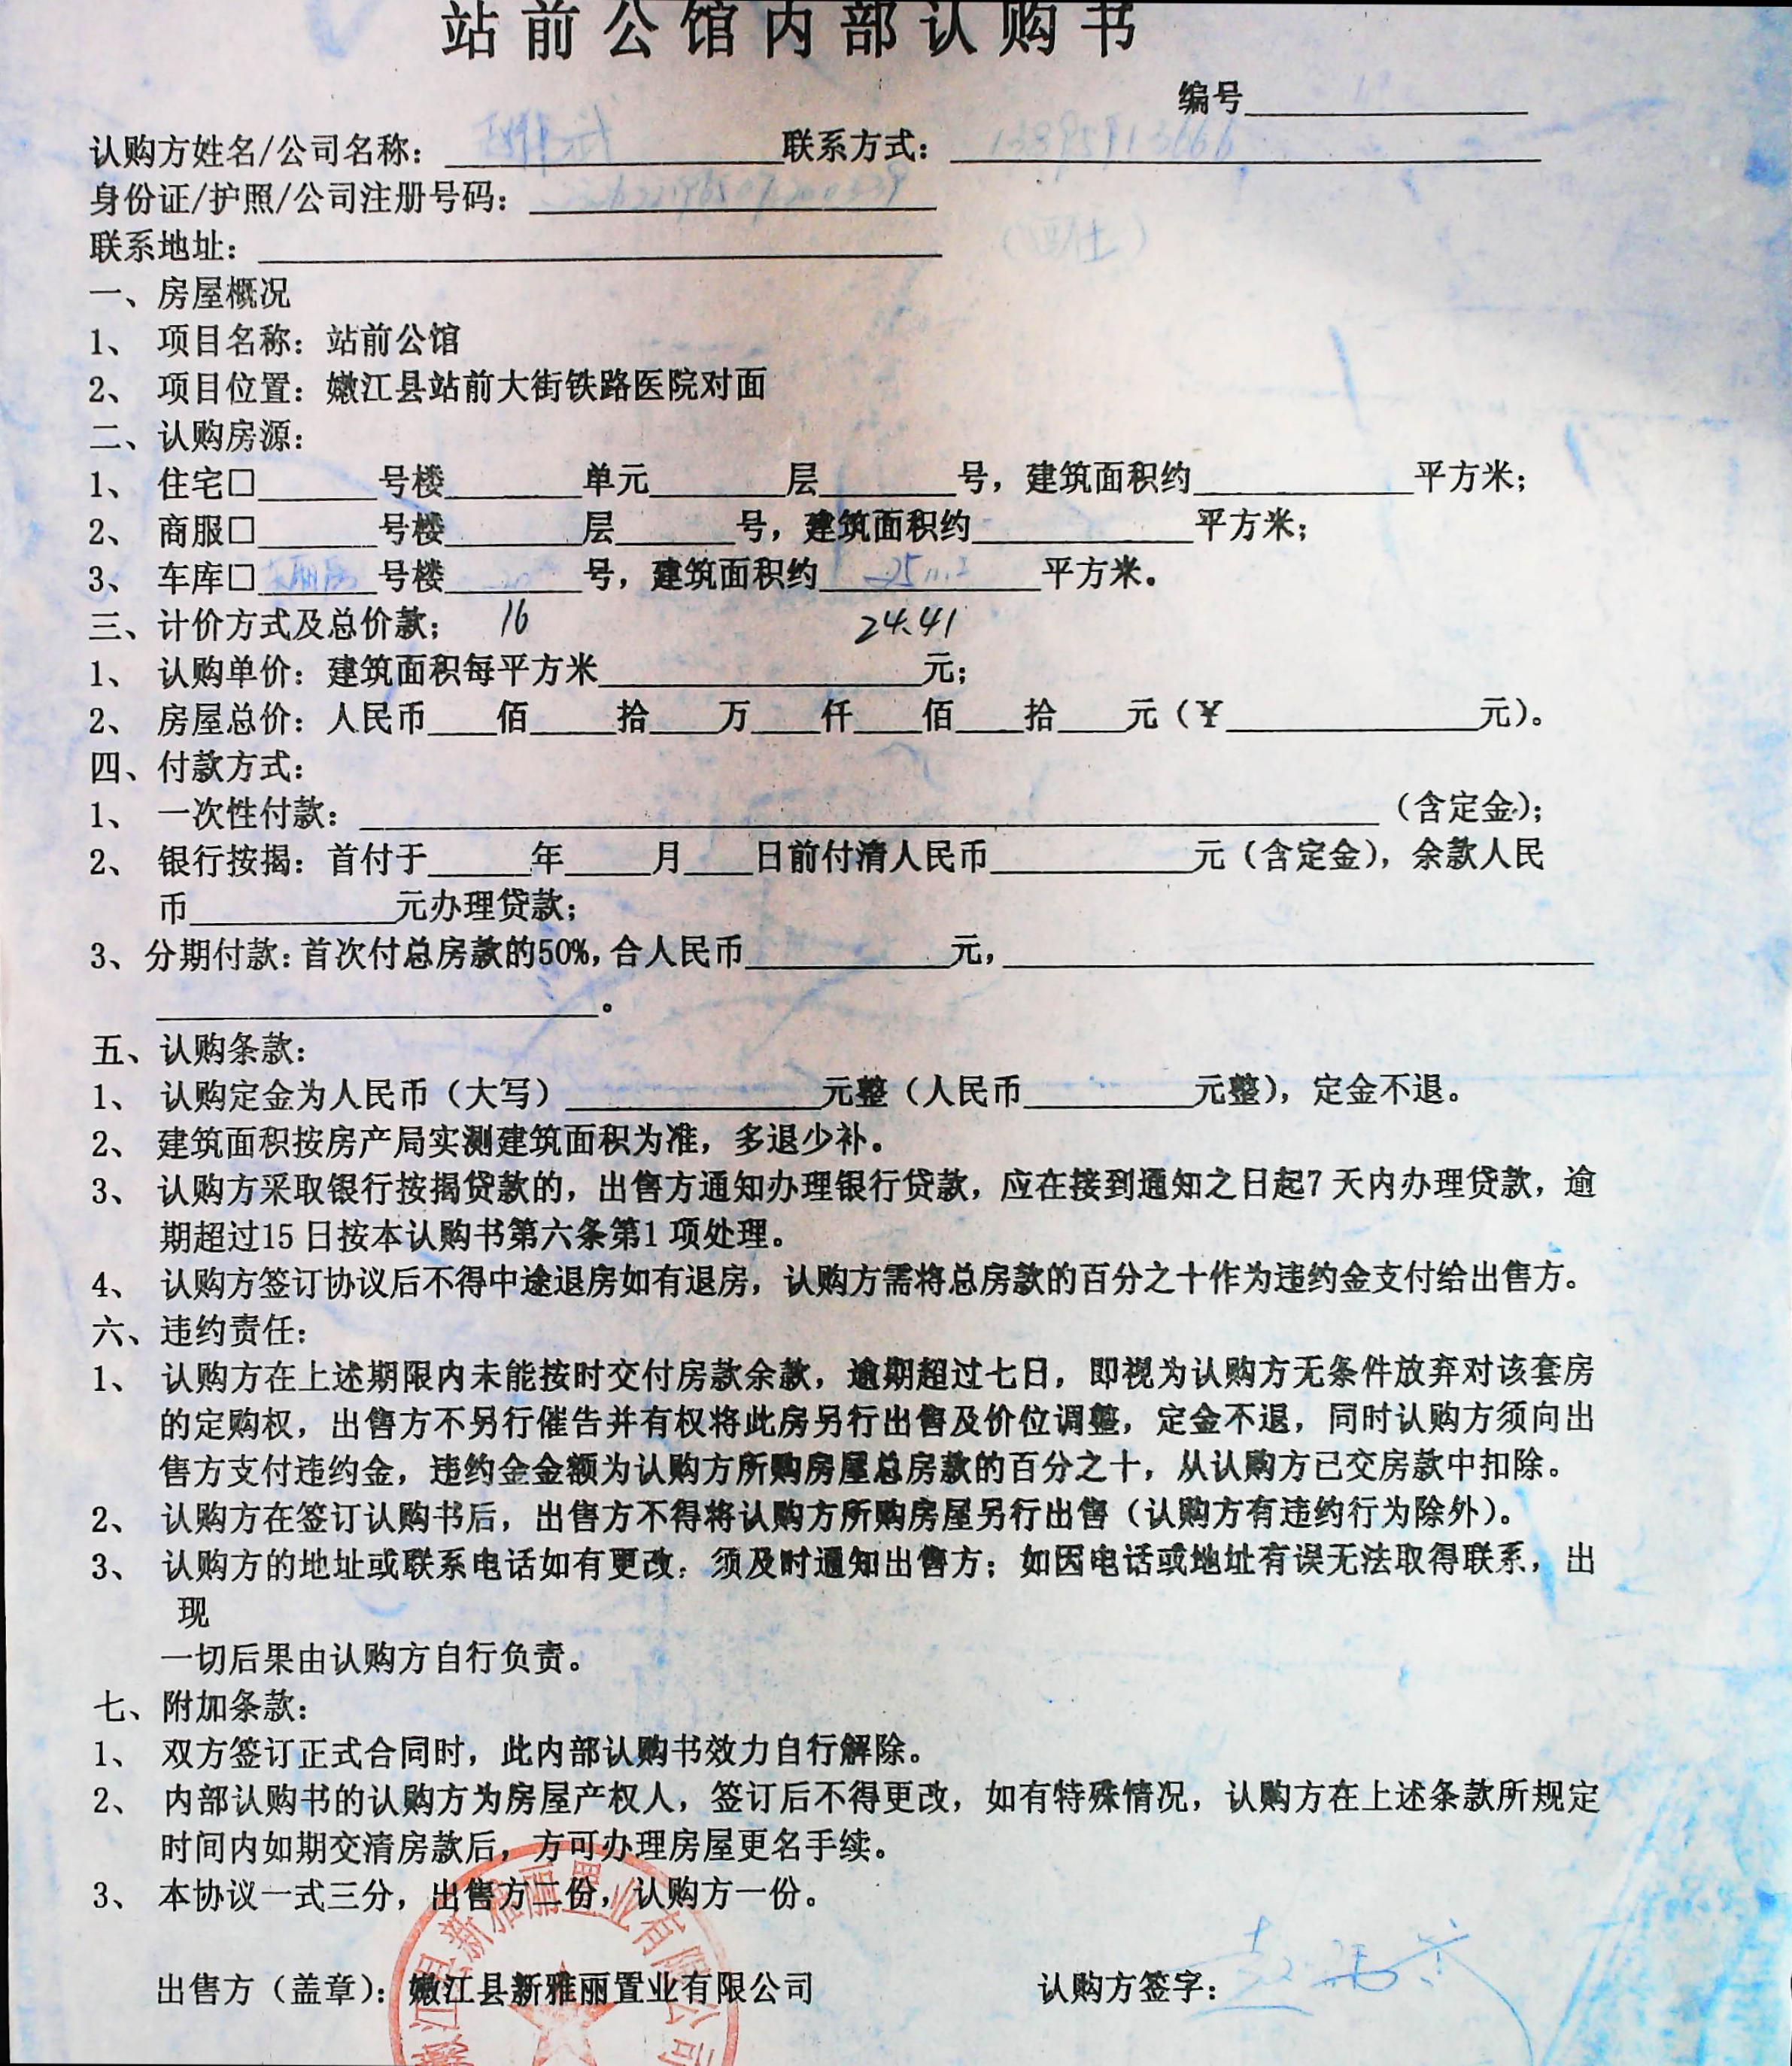 站前公馆内部认购书
编号____________
认购方姓名/公司名称：____________联系方式：13895913666
身份证/护照/公司注册号码：____________
联系地址：____________
一、房屋概况
1、 项目名称：站前公馆
2、 项目位置：嫩江县站前大街铁路医院对面
二、认购房源：
1、 住宅□______号楼______单元______层______号，建筑面积约________平方米；
2、 商服□______号楼______层______号，建筑面积约________平方米；
3、 车库□______号楼______号，建筑面积约________平方米。
三、计价方式及总价款； 16 24.41
1、 认购单价：建筑面积每平方米____________元；
2、 房屋总价：人民币___佰___拾___万___仟___佰___拾___元（¥__________元）。
四、付款方式：
1、 一次性付款：________________________（含定金）；
2、 银行按揭：首付于_____年_____月____日前付清人民币________元（含定金），余款人民
币________元办理贷款；
3、分期付款：首次付总房款的50%，合人民币________元，________________
________________。
五、认购条款：
1、 认购定金为人民币（大写）____________元整（人民币________元整），定金不退。
2、 建筑面积按房产局实测建筑面积为准，多退少补。
3、 认购方采取银行按揭贷款的，出售方通知办理银行贷款，应在接到通知之日起7 天内办理贷款，逾
期超过15 日按本认购书第六条第1 项处理。
4、 认购方签订协议后不得中途退房如有退房，认购方需将总房款的百分之十作为违约金支付给出售方。
六、违约责任：
1、 认购方在上述期限内未能按时交付房款余款，逾期超过七日，即视为认购方无条件放弃对该套房
的定购权，出售方不另行催告并有权将此房另行出售及价位调整，定金不退，同时认购方须向出
售方支付违约金，违约金金额为认购方所购房屋总房款的百分之十，从认购方已交房款中扣除。
2、 认购方在签订认购书后，出售方不得将认购方所购房屋另行出售（认购方有违约行为除外）。
3、 认购方的地址或联系电话如有更改，须及时通知出售方；如因电话或地址有误无法取得联系，出
现
一切后果由认购方自行负责。
七、附加条款：
1、 双方签订正式合同时，此内部认购书效力自行解除。
2、 内部认购书的认购方为房屋产权人，签订后不得更改，如有特殊情况，认购方在上述条款所规定
时间内如期交清房款后，方可办理房屋更名手续。
3、 本协议一式三分，出售方二份，认购方一份。
出售方（盖章）：嫩江县新雅丽置业有限公司 认购方签字：
嫩江县新雅丽置业有限公司